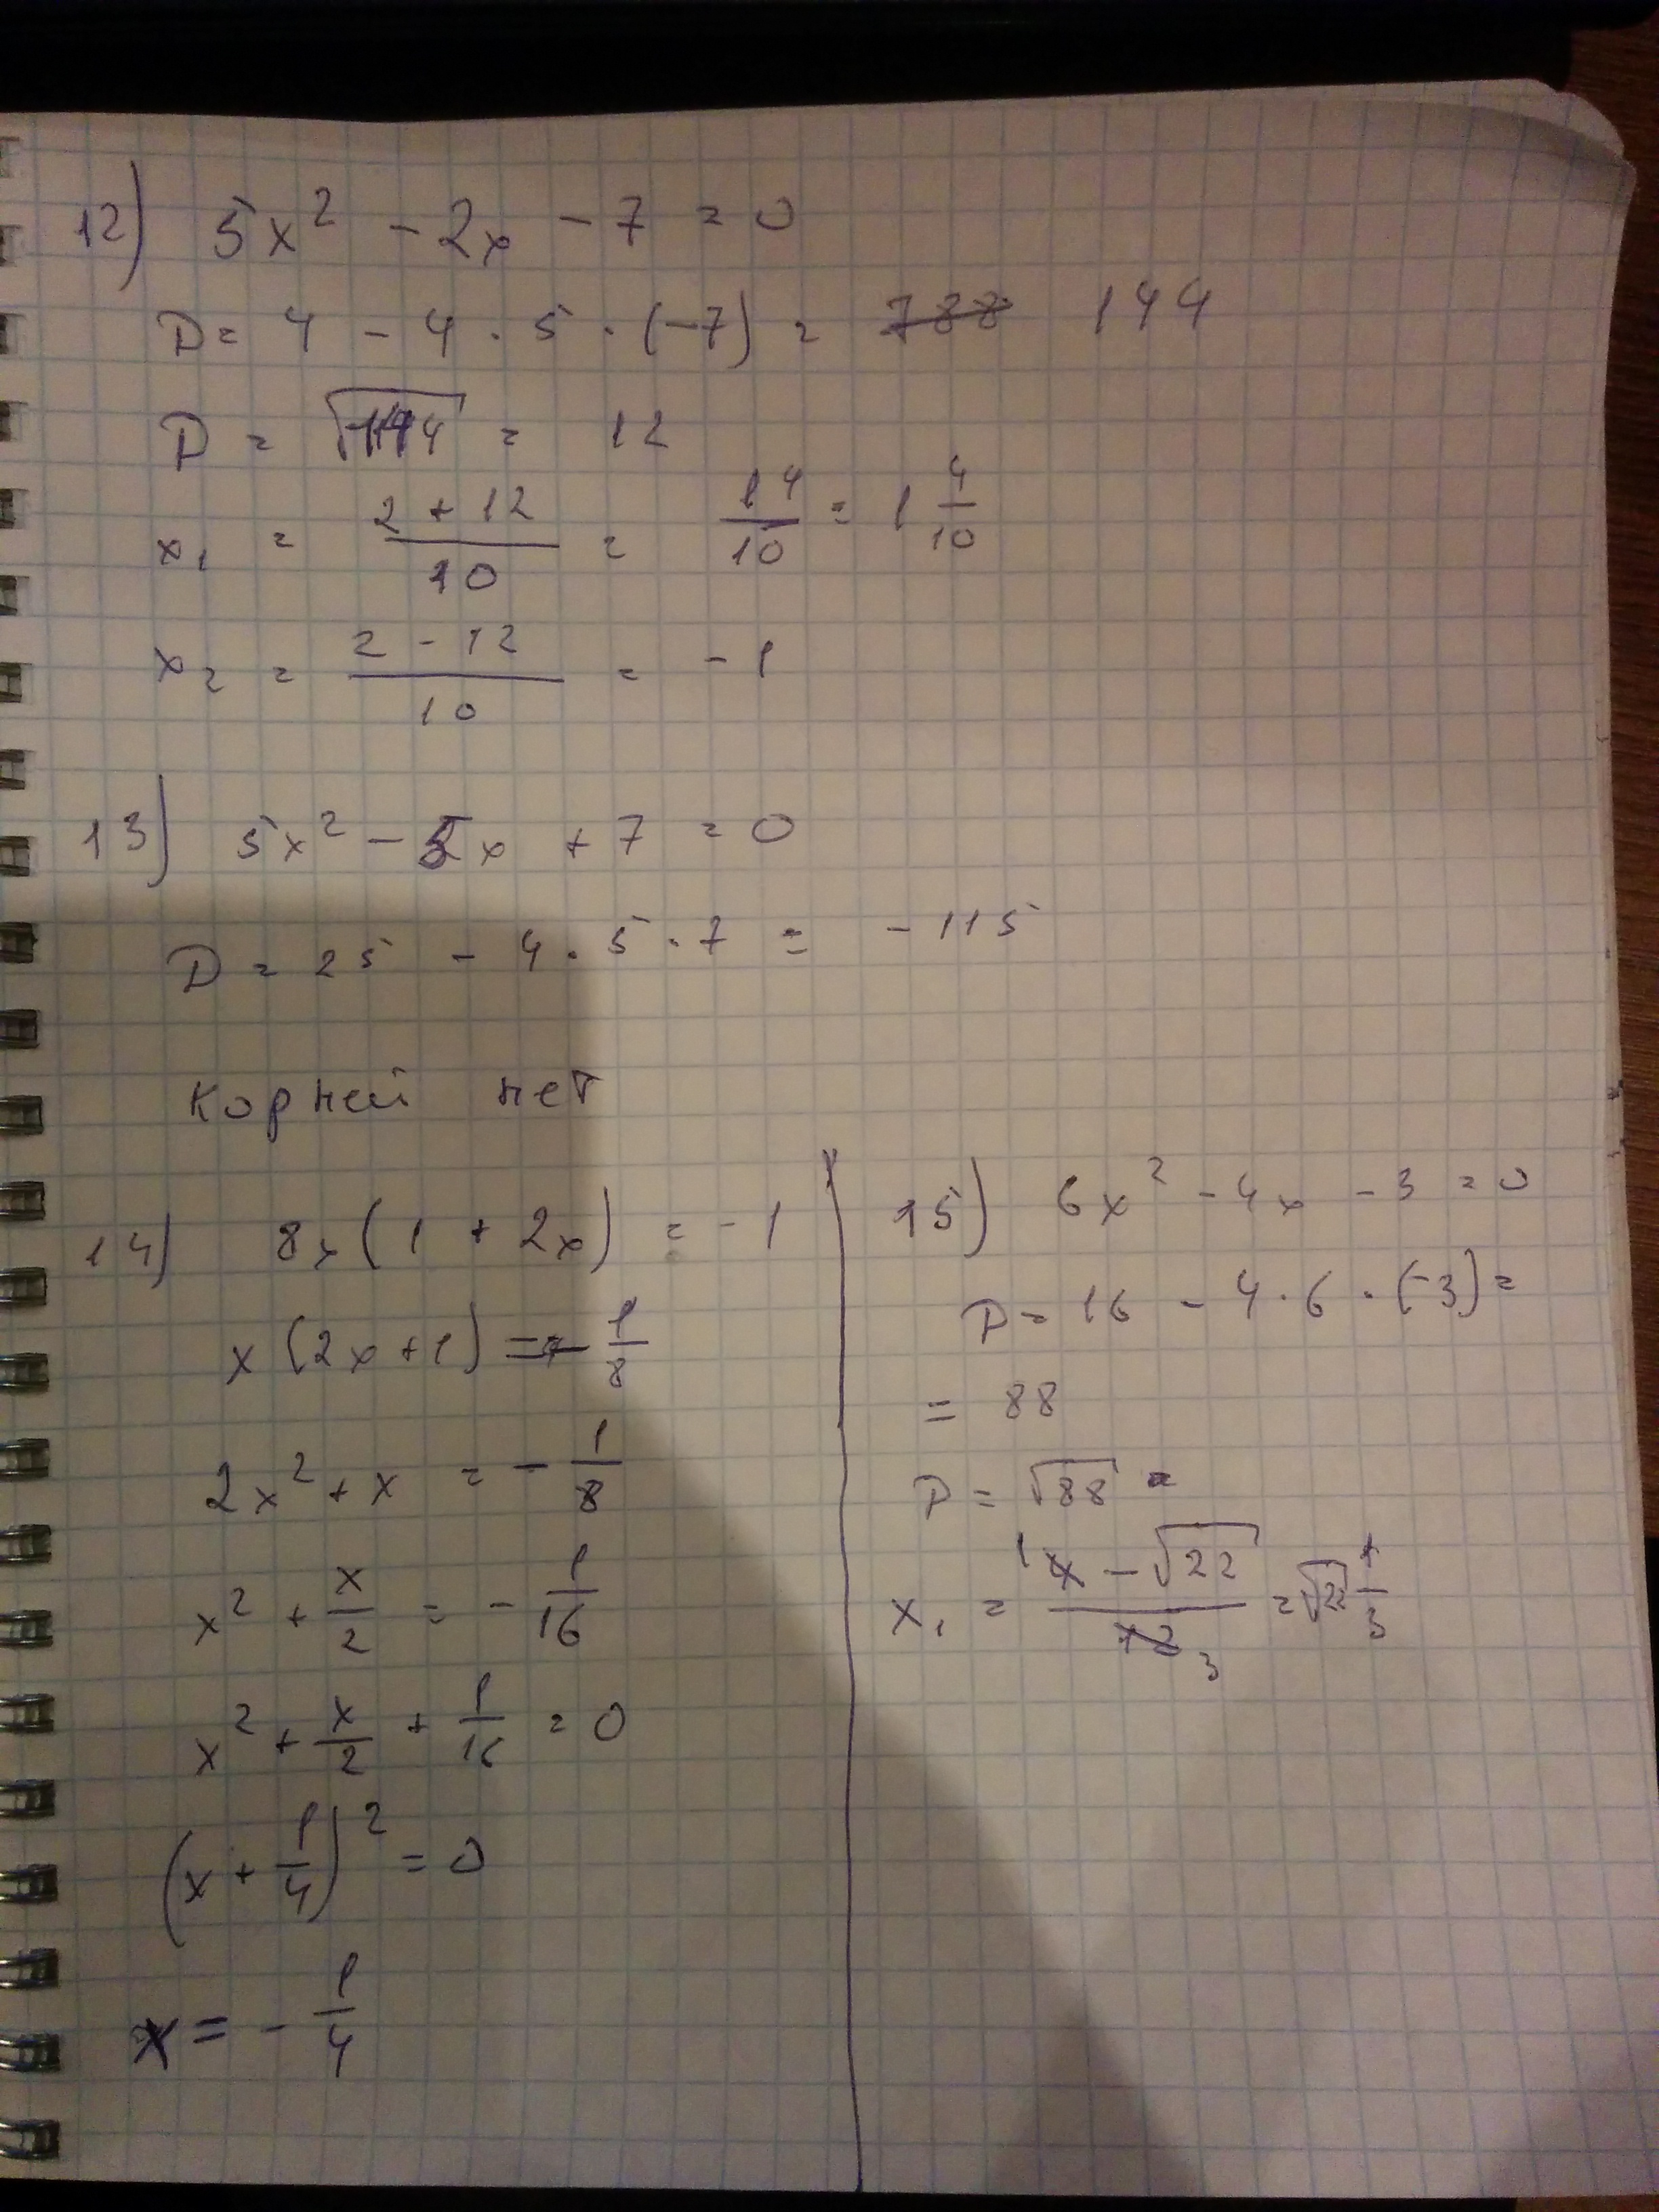 12) 5x² - 2x - 7 = 0
D = 4 - 4 · 5 · (-7) = 788 144
D = √144 = 12
x₁ = (2 + 12)/10 = 14/10 = 1 4/10
x₂ = (2 - 12)/10 = -1
13) 5x² - 5x + 7 = 0
D = 25 - 4 · 5 · 7 = -115
корней нет
14) 8x(1 + 2x) = -1
x(2x+1) = - 1/8
2x² + x = - 1/8
x² + x/2 = - 1/16
x² + x/2 + 1/16 = 0
(x + 1/4)² = 0
x = - 1/4
15) 6x² - 4x - 3 = 0
D = 16 - 4 · 6 · (-3) =
= 88
D = √88 =
x₁ = (1 4 - √22)/(12 3) = √22 1/3